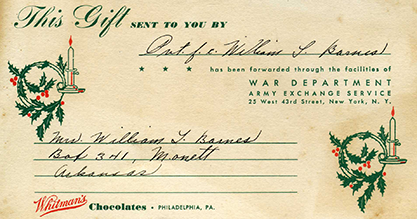 This Gift SENT TO YOU BY
Pvt. f.c. William L Barnes
★ ★ ★ has been forwarded through the facilities of
WAR DEPARTMENT
ARMY EXCHANGE SERVICE
25 West 43rd Street, New York, N. Y.
Mrs William L Barnes
Box 341, Monett
Arkansas
Whitman's Chocolates • PHILADELPHIA, PA.